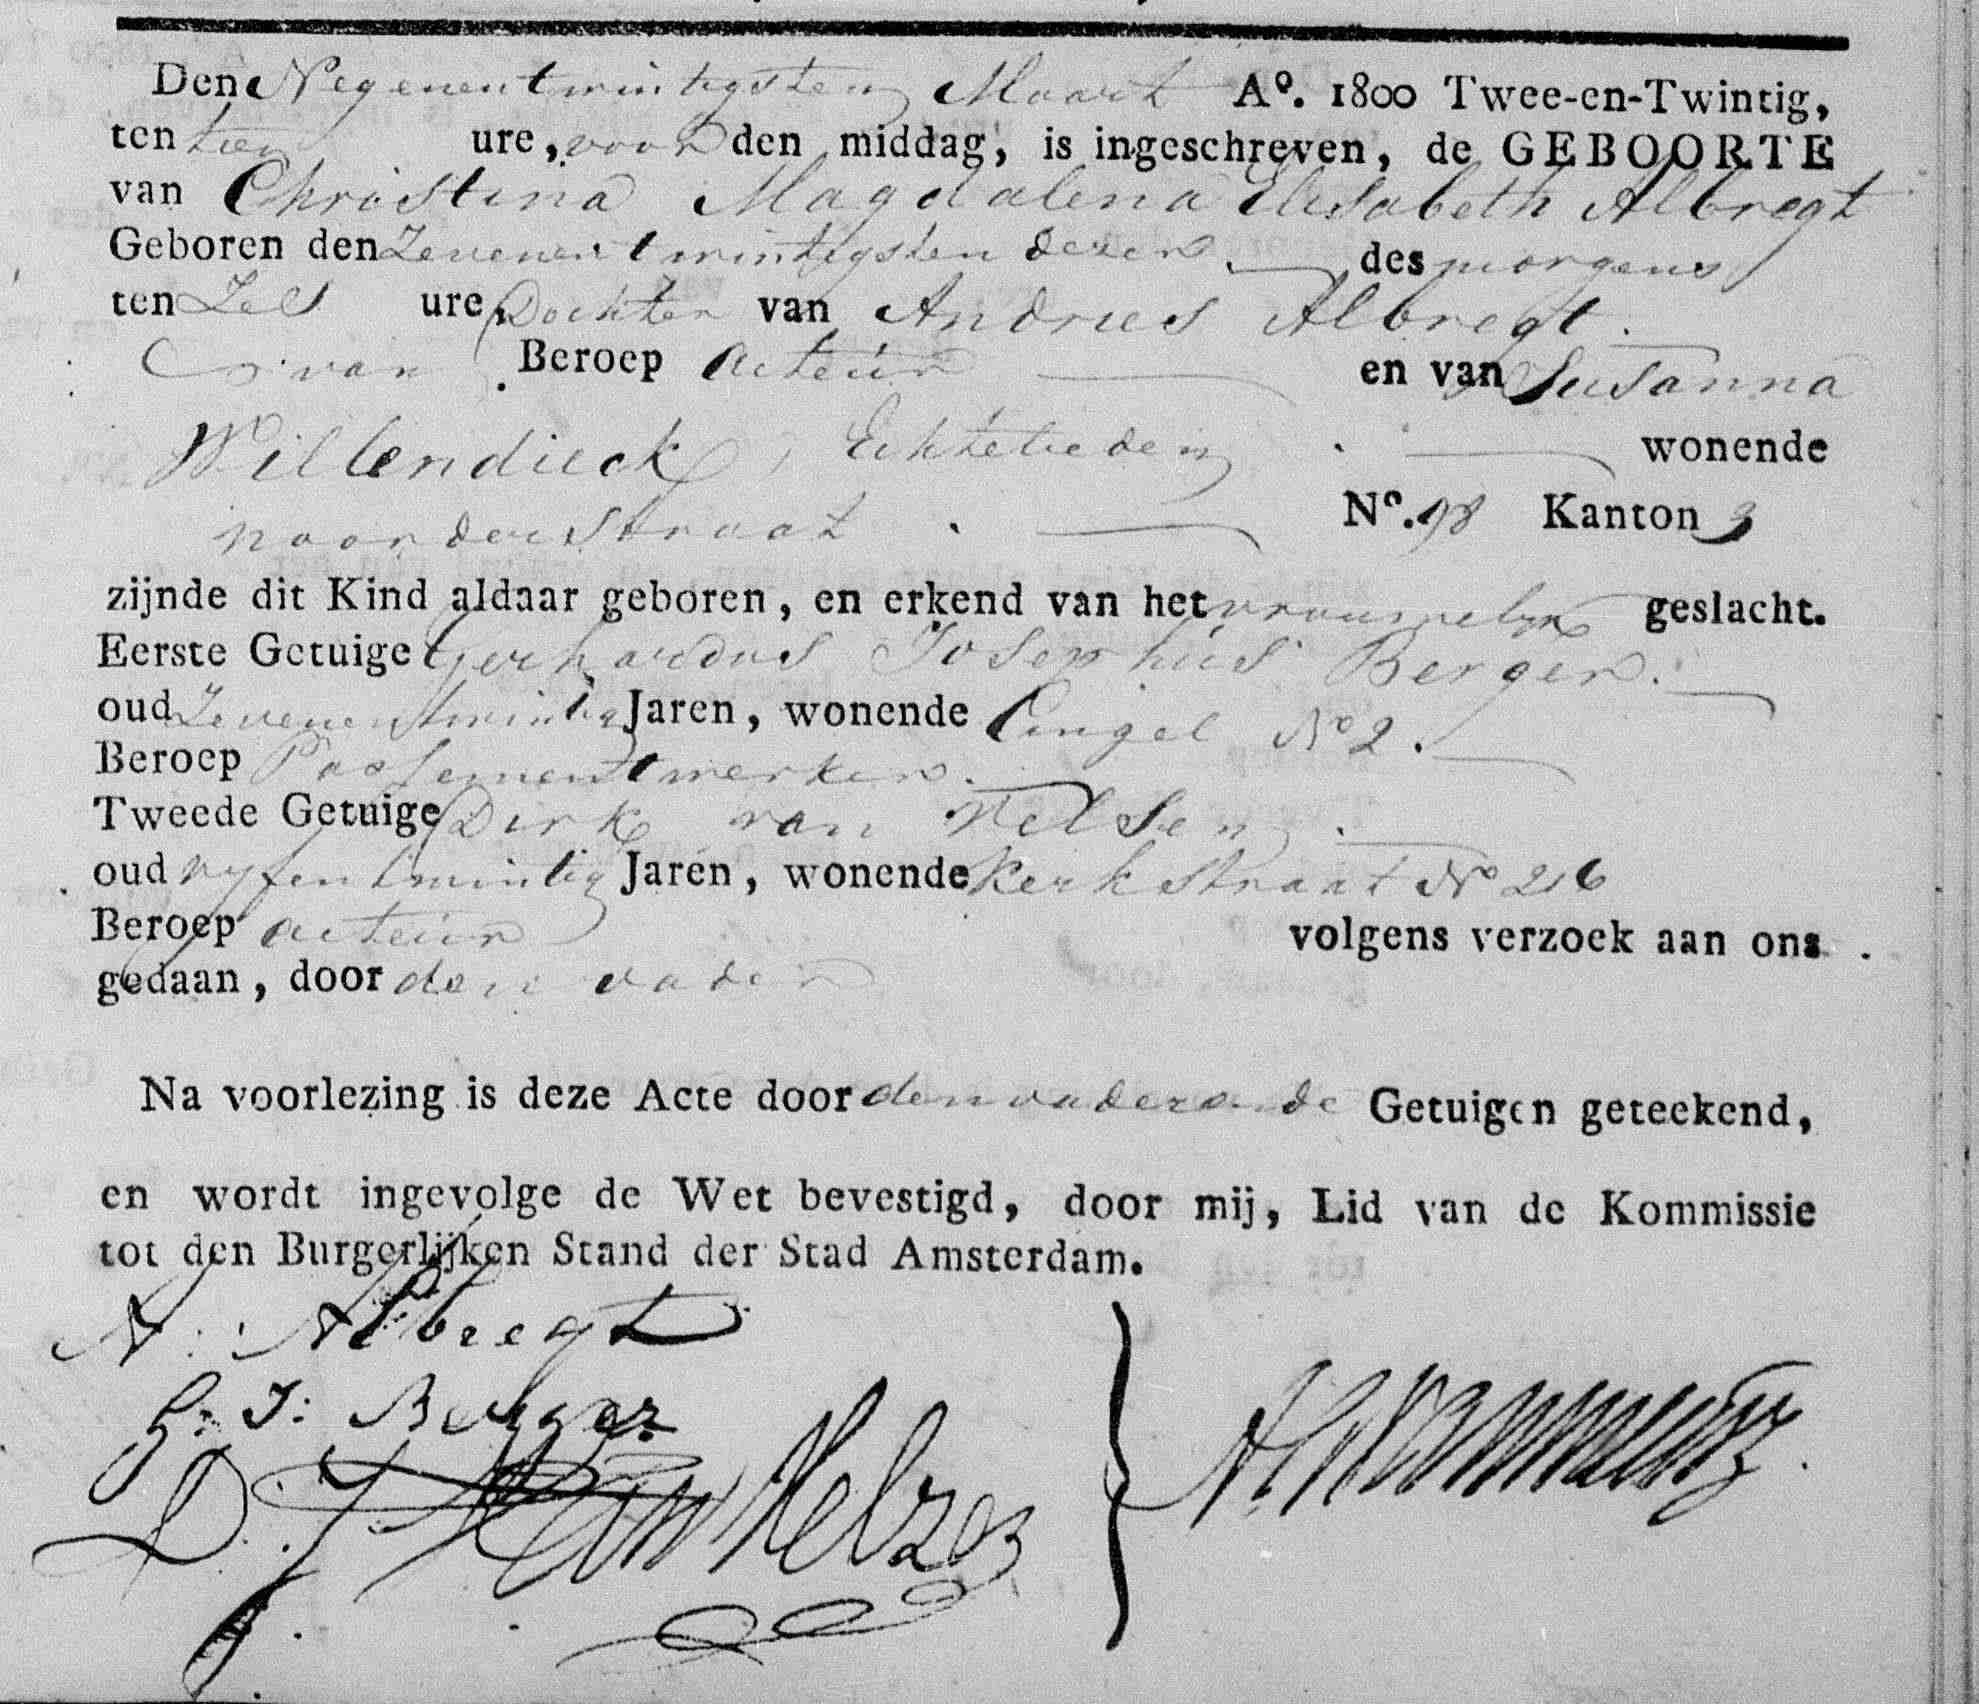 Den Negenentwintigsten Maart Aº. 1800 Twee-en-Twintig,
ten tien ure, voor den middag, is ingeschreven, de GEBOORTE
van Christina Magdalena Elisabeth Albregt
Geboren den Zevenentwintigsten dezer des morgens
ten Zes ure, Dochter van Andries Albregt.
van Beroep acteur en van Susanna
Willendieck, Echtelieden wonende
noorderstraat Nº. 98 Kanton 3
zijnde dit Kind aldaar geboren, en erkend van het vrouwelyk geslacht.
Eerste Getuige Gerhardus Josephus Berger.
oud Zevenentwintig Jaren, wonende Cingel Nº 2.
Beroep Passementwerker.
Tweede Getuige Dirk van Helsen
oud vyfentwintig Jaren, wonende Kerkstraat Nº 216
Beroep acteur volgens verzoek aan ons
gedaan, door den vader
Na voorlezing is deze Acte door den vader en de Getuigen geteekend,
en wordt ingevolge de Wet bevestigd, door mij, Lid van de Kommissie
tot den Burgerlijken Stand der Stad Amsterdam.
A. Albregt
G. J. Berger
D. J. van Helzen